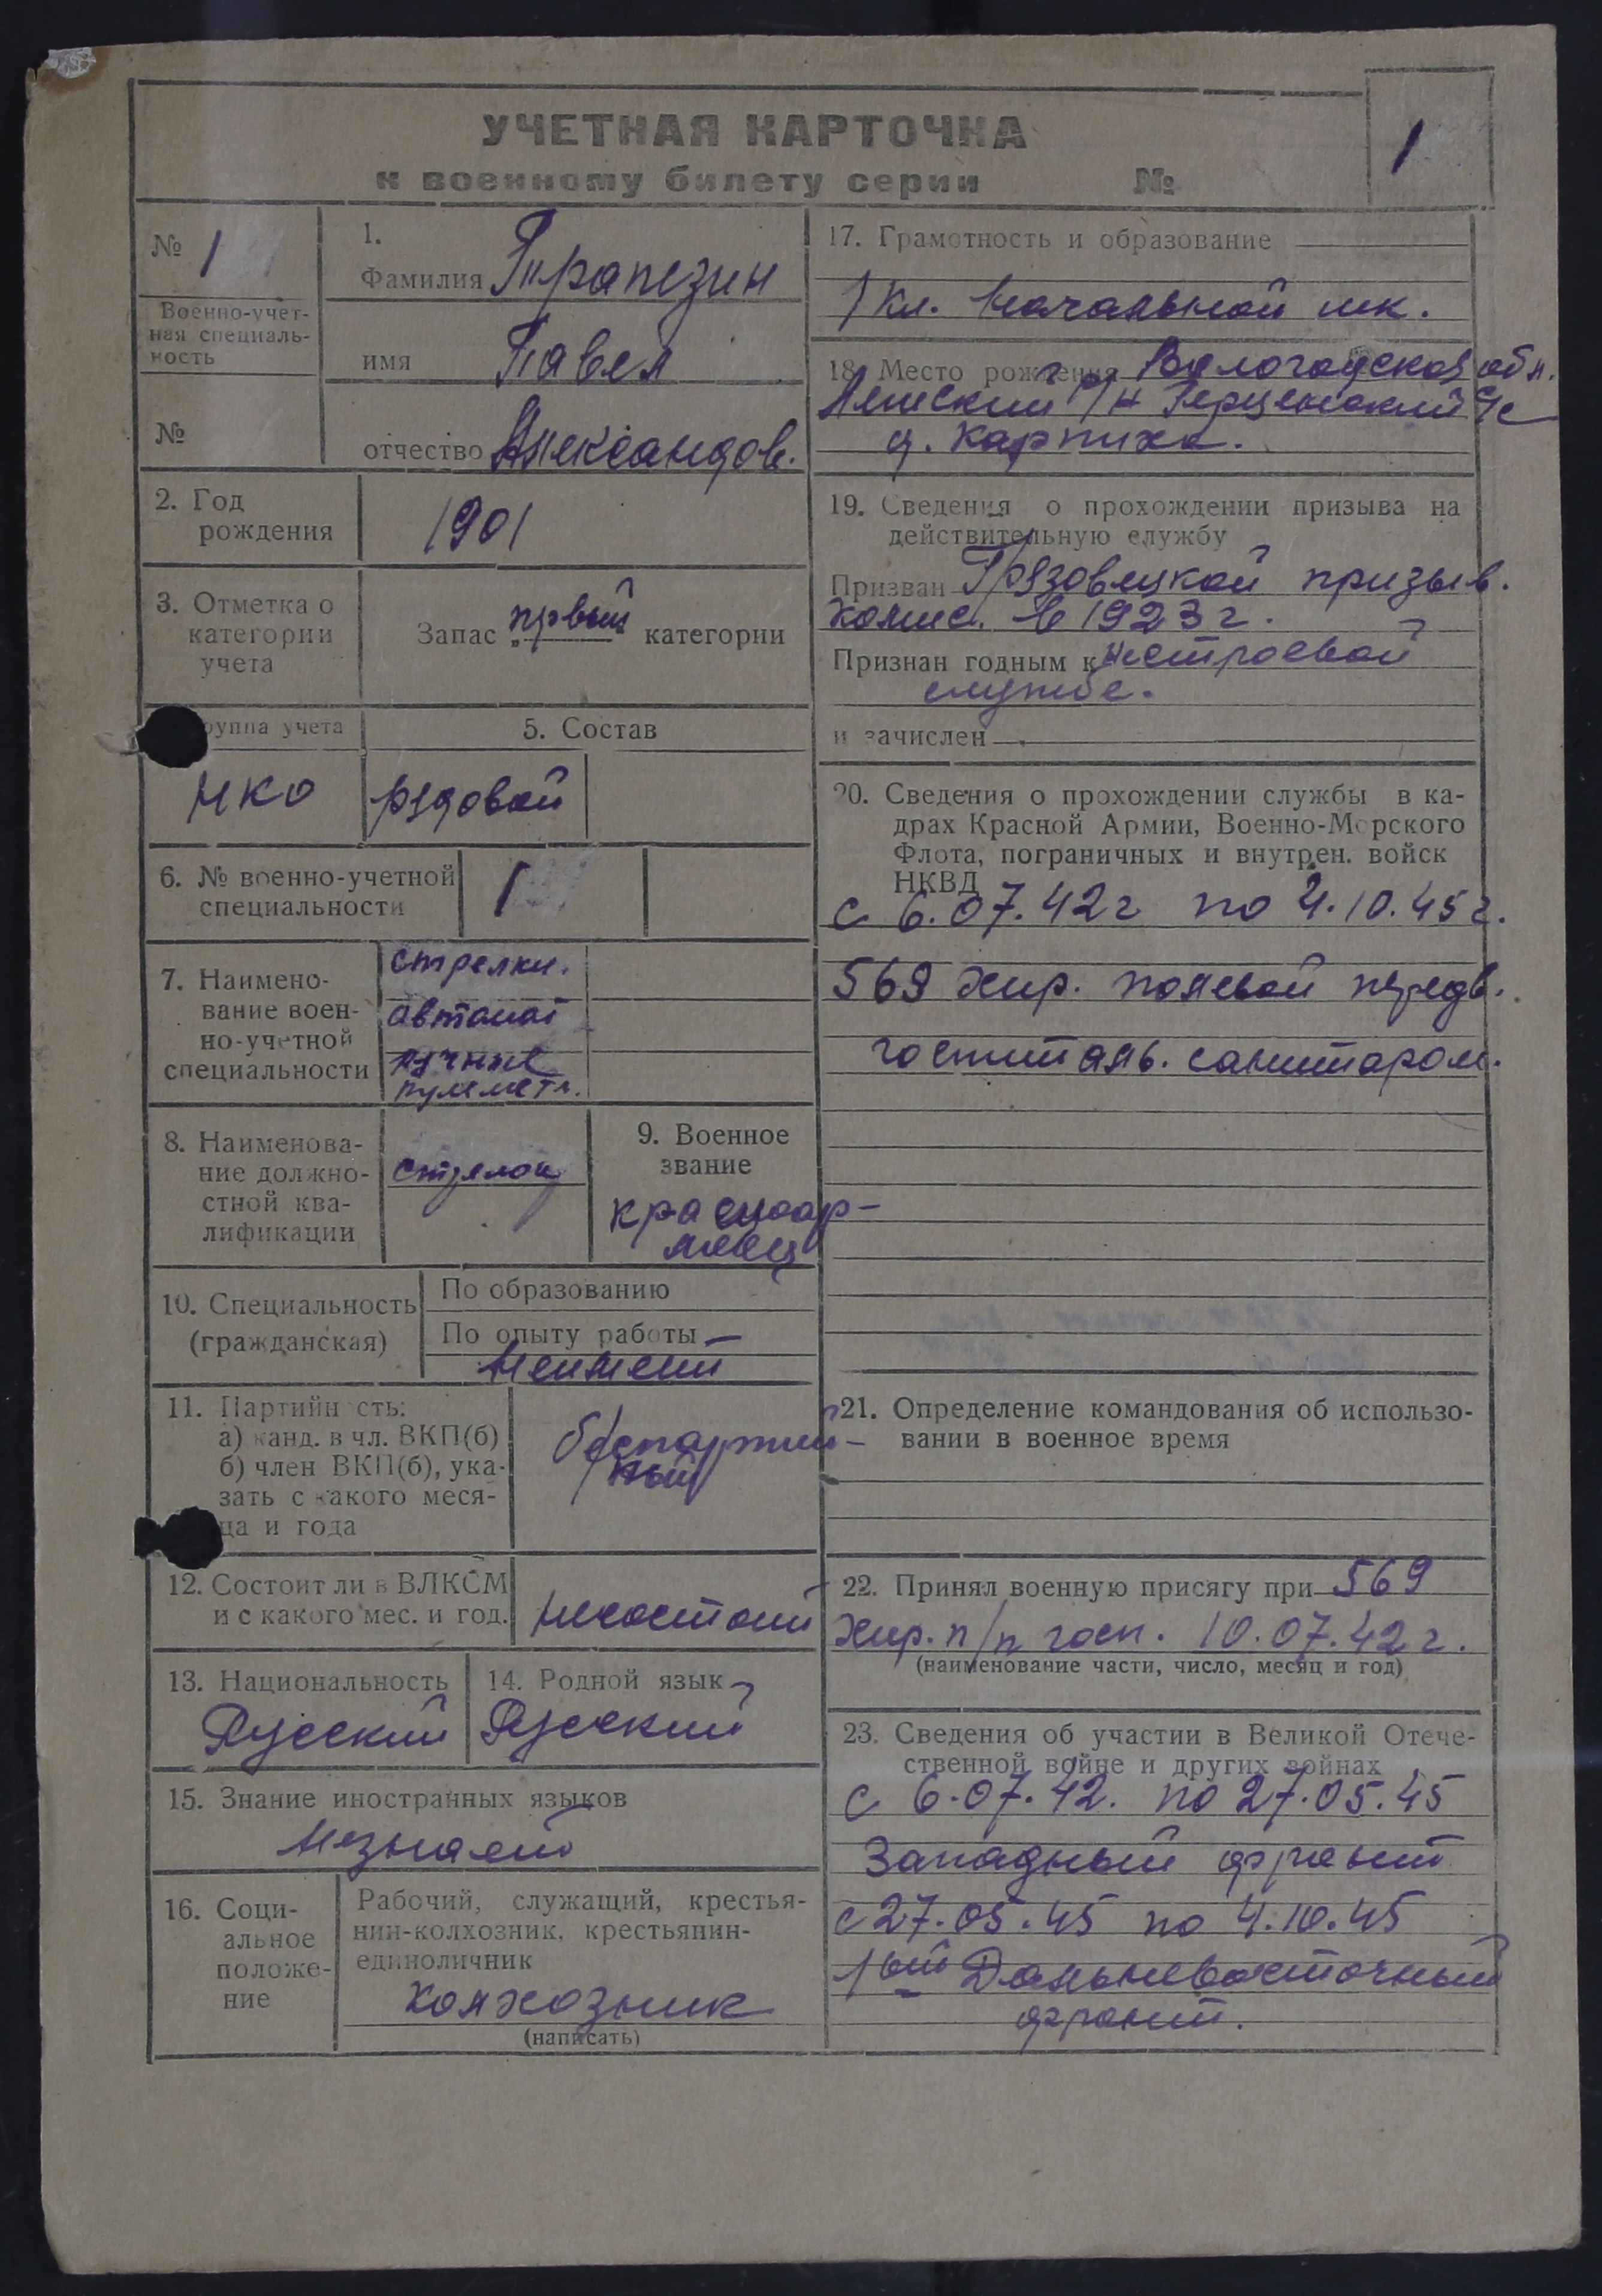 УЧЕТНАЯ КАРТОЧКА
к военному билету серии №
1
№ 1
Военно-учет-
ная специаль-
ность
№
1.
Фамилия Трапезин
имя Павел
отчество Александов.
2. Год
рождения
1901
3. Отметка о
категории
учета
Запас первый категории
руппа учета
НКО
5. Состав
рядовой
6. № военно-учетной
специальности
1
7. Наимено-
вание воен-
но-учетной
специальности
стрелки.
автомат
ручные
пулемет.
8. Наименова-
ние должно-
стной ква-
лификации
стрелок
9. Военное
звание
красноар-
меец
10. Специальность
(гражданская)
По образованию
По опыту работы
Неимеит
11. Партийн сть:
а) канд. в чл. ВКП(б)
б) член ВКП(б), ука-
зать с какого меся-
ца и года
беспартий-
ный
12. Состоит ли в ВЛКСМ
и с какого мес. и год.
несостоит
13. Национальность
Русский
14. Родной язык
Русский
15. Знание иностранных языков
Незнает
16. Соци-
альное
положе-
ние
Рабочий, служащий, крестья-
нин-колхозник, крестьянин-
единоличник
Колхозник
(написать)
17. Грамотность и образование
1 кл. Начальной шк.
18. Место рождения Вологодской обл.
р/н Герценский с/с
д. Карпиха.
19. Сведения о прохождении призыва на
действительную службу
Призван Грязовецкой призыв.
комис. в 1923 г.
Признан годным к нестроевой
службе.
и зачислен
20. Сведения о прохождении службы в ка-
драх Красной Армии, Военно-Морского
Флота, пограничных и внутрен. войск
НКВД
с 6.07.42г по 4.10.45г.
569 хир. полевой передв.
госпиталь. санитаром.
21. Определение командования об использо-
вании в военное время
22. Принял военную присягу при 569
хир. п/п госп. 10.07.42 г.
(наименование части, число, месяц и год)
23. Сведения об участии в Великой Отече-
ственной войне и других войнах
с 6.07.42. по 27.05.45
Западный фронт
с 27.05.45 по 4.10.45
1ый Дальневосточный
фронт.